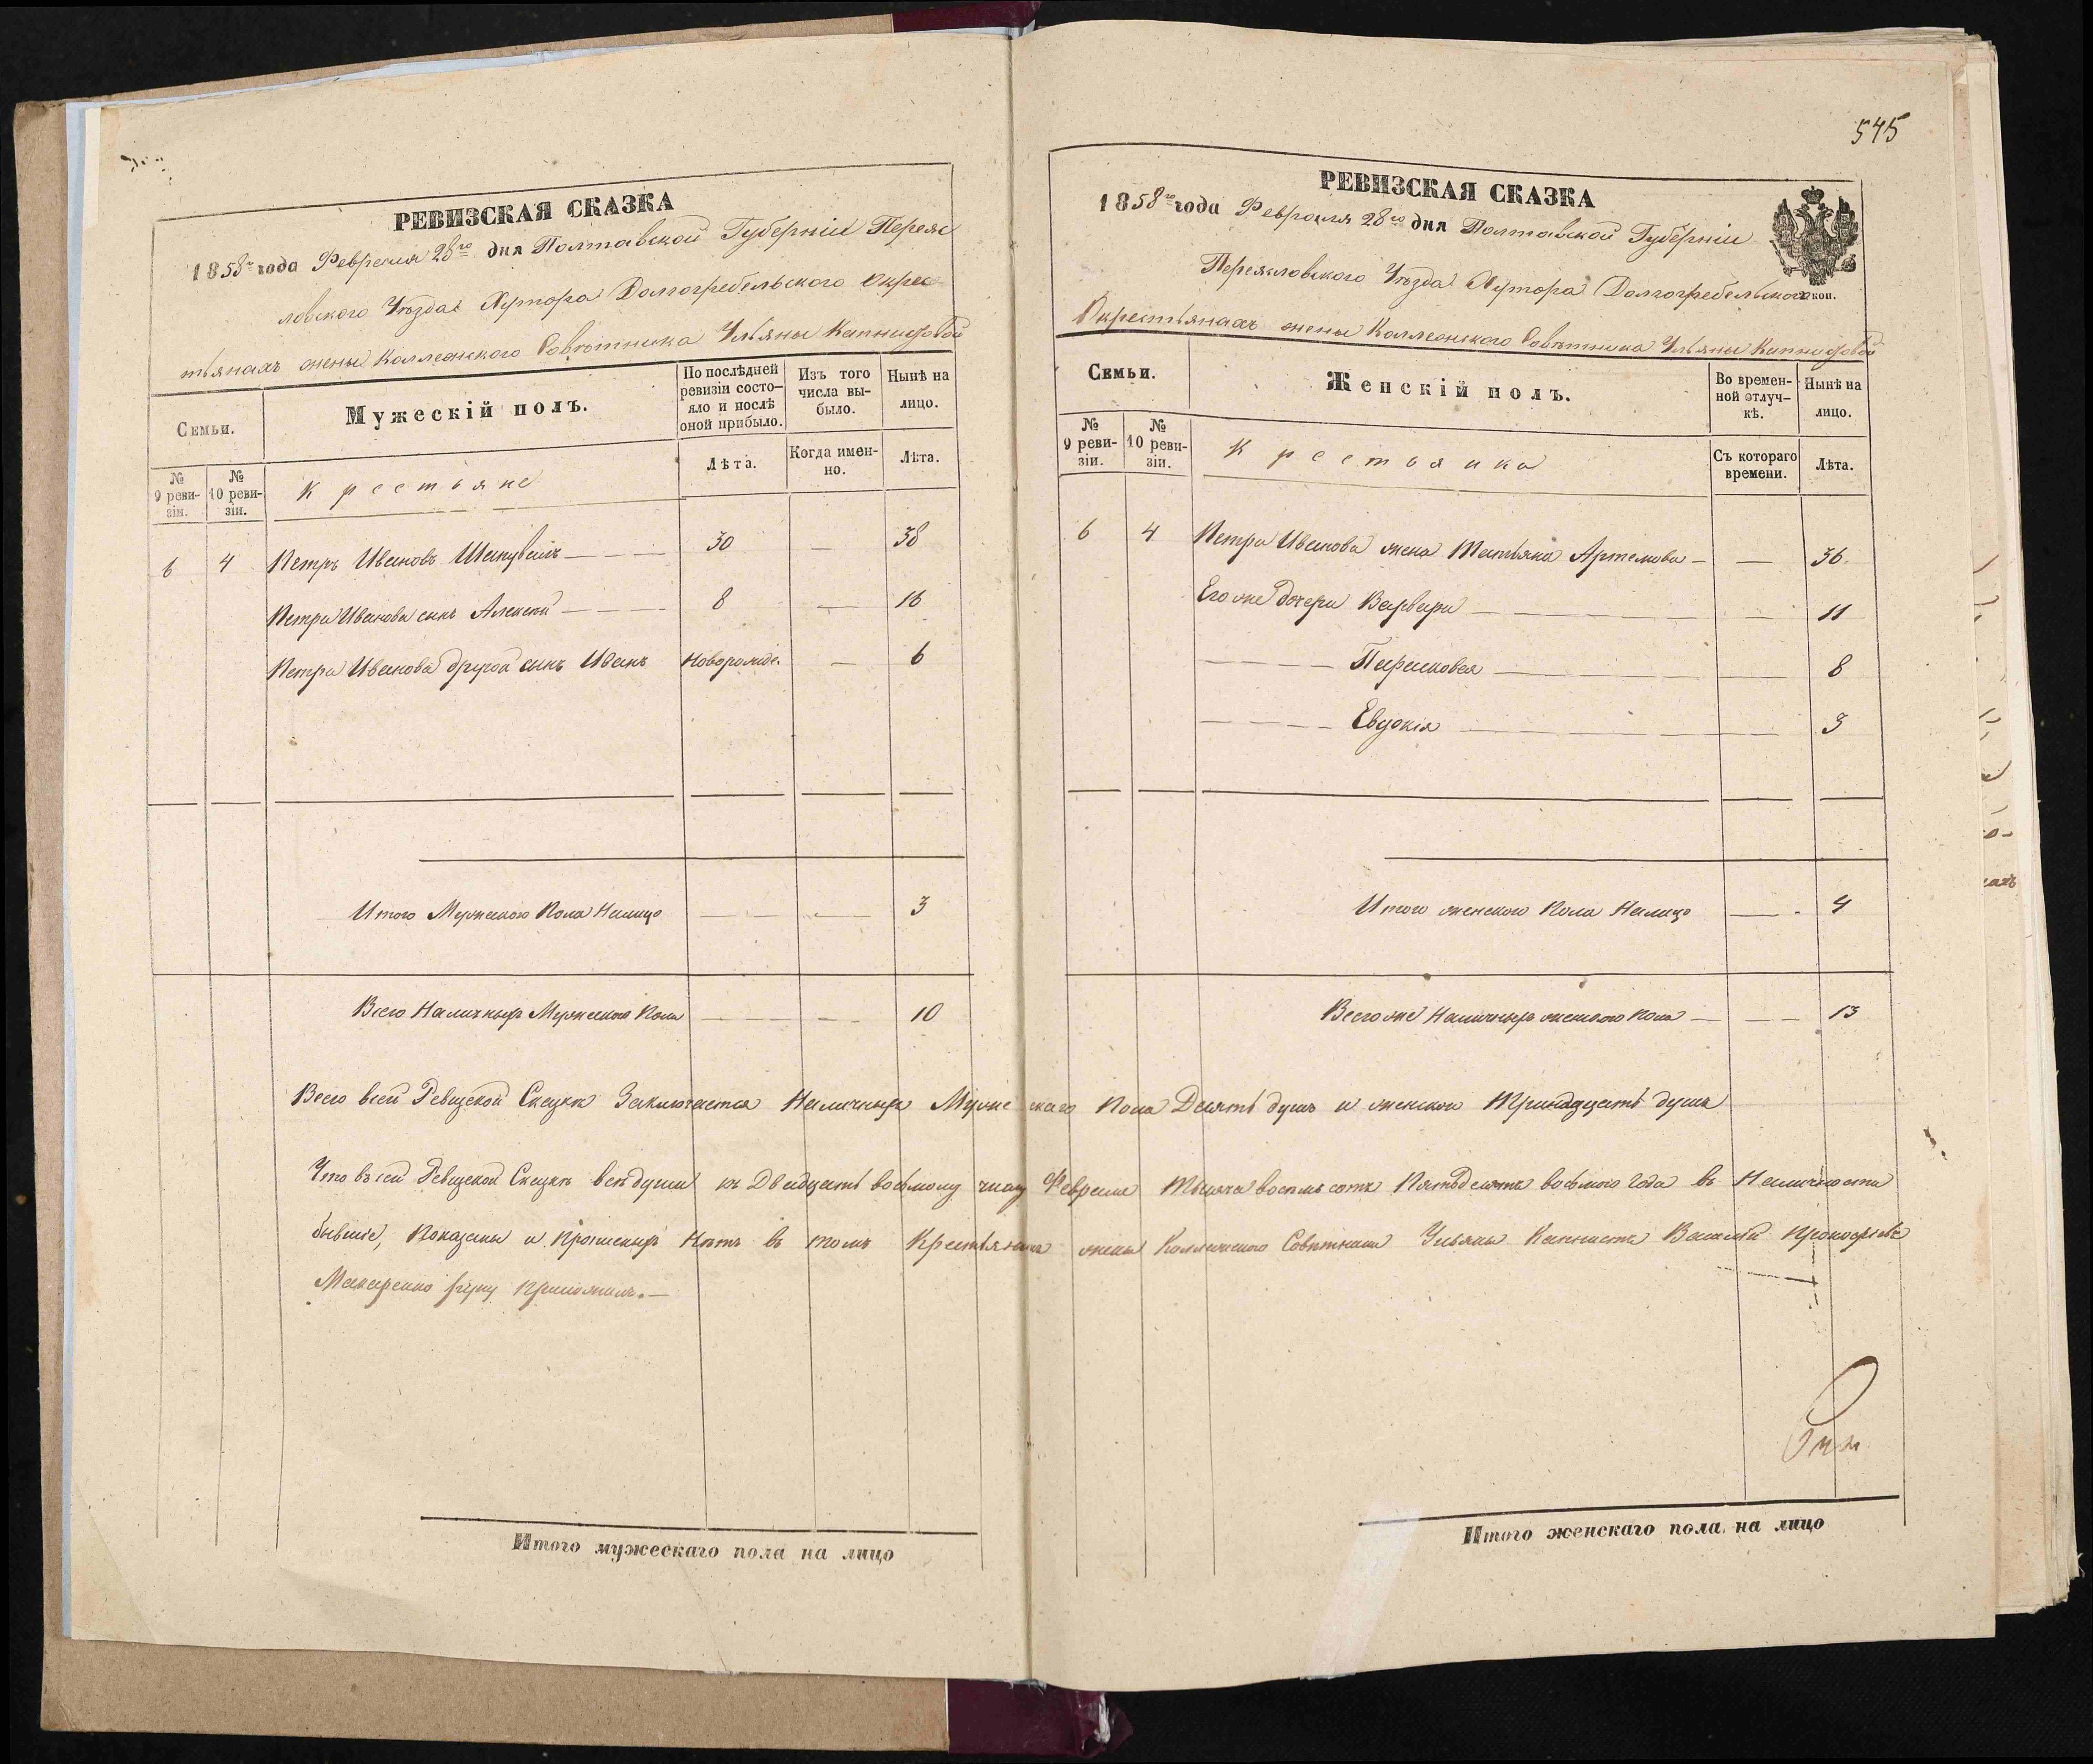 РЕВИЗСКАЯ СКАЗКА
1858го года Февраля 28го дня Полтавской Губерніи Переяс
ловского Уѣзда Хутора Долгогребельского Окрес
тьянахъ жены Коллежского Совѣтника Ульяны Капнистовой
Семьи.
Мужескій полъ.
По послѣдней ревизіи состо-яло и послѣ оной прибыло.
Изъ того числа вы-было.
Нынѣ на лицо.
№ 9 реви-зіи.
№ 10 реви-зіи.
Крестьяне
Лѣта.
Когда имен-но.
Лѣта.
6 4 Петръ Ивановъ Шаповалъ — 30 — 38
Петра Иванова сынъ Алексѣй — 8 — 16
Петра Иванова другой сынъ Иванъ Новорожде. — 6
Итого Мужеского Пола Налицо — — 3
Всего Наличныхъ Мужеского Пола — — 10
545
РЕВИЗСКАЯ СКАЗКА
1858го года Февраля 28го дня Полтавской Губерніи
Переясловского Уѣзда Хутора Долгогребельского коп.
Окрестьянахъ жены Коллежского Совѣтника Ульяны Капнистовой
Семьи.
Женскій полъ.
Во времен-ной отлуч-кѣ.
Нынѣ на лицо.
№ 9 реви-зіи.
№ 10 реви-зіи.
Крестьянка
Съ котораго времени.
Лѣта.
6 4 Петра Иванова жена Татьяна Артемова — — 36
Его же дочери Варвара — — 11
Парасковея — — 8
Евдокія — — 3
Итого женского Пола Налицо — - 4
Всего же Наличныхъ женского Пола — — 13
Всего всей Ревизской Сказкѣ Заключается Наличныхъ Мужескаго Пола Десять душъ и женского Тринадцать душъ
Что въ сей Ревизской Сказкѣ всѣ души къ Двадцать восьмому числу Февраля Тысяча восемь сотъ Пятьдесятъ восьмого Года въ Наличности
бывшіе, Показаны и прописныхъ Нѣтъ въ томъ Крестьянинъ жены Коллежского Совѣтника Ульяны Капнистъ Василій Прокофьевъ
Макаренко руку приложилъ.—
Итого мужескаго пола на лицо
Итого женскаго пола на лицо